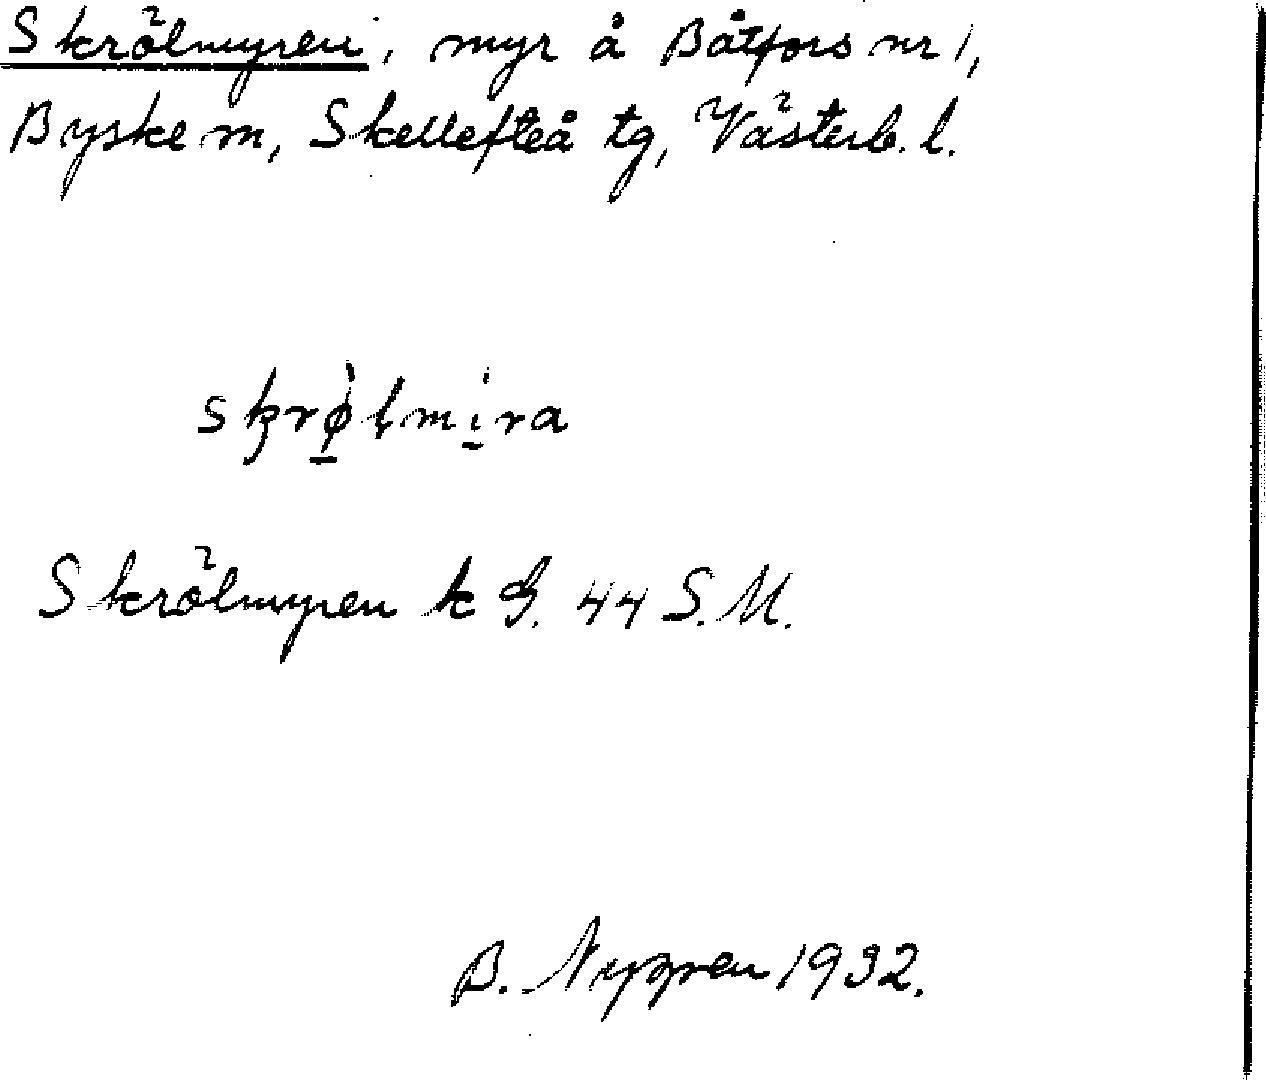 Skrölmyren, myr å Båtfors nr 1,
Byske sn, Skellefteå tg, Västerb. l.
skrø̀lmira
Skrölmyren k G. 44 S.M.
B. Nygren 1932.